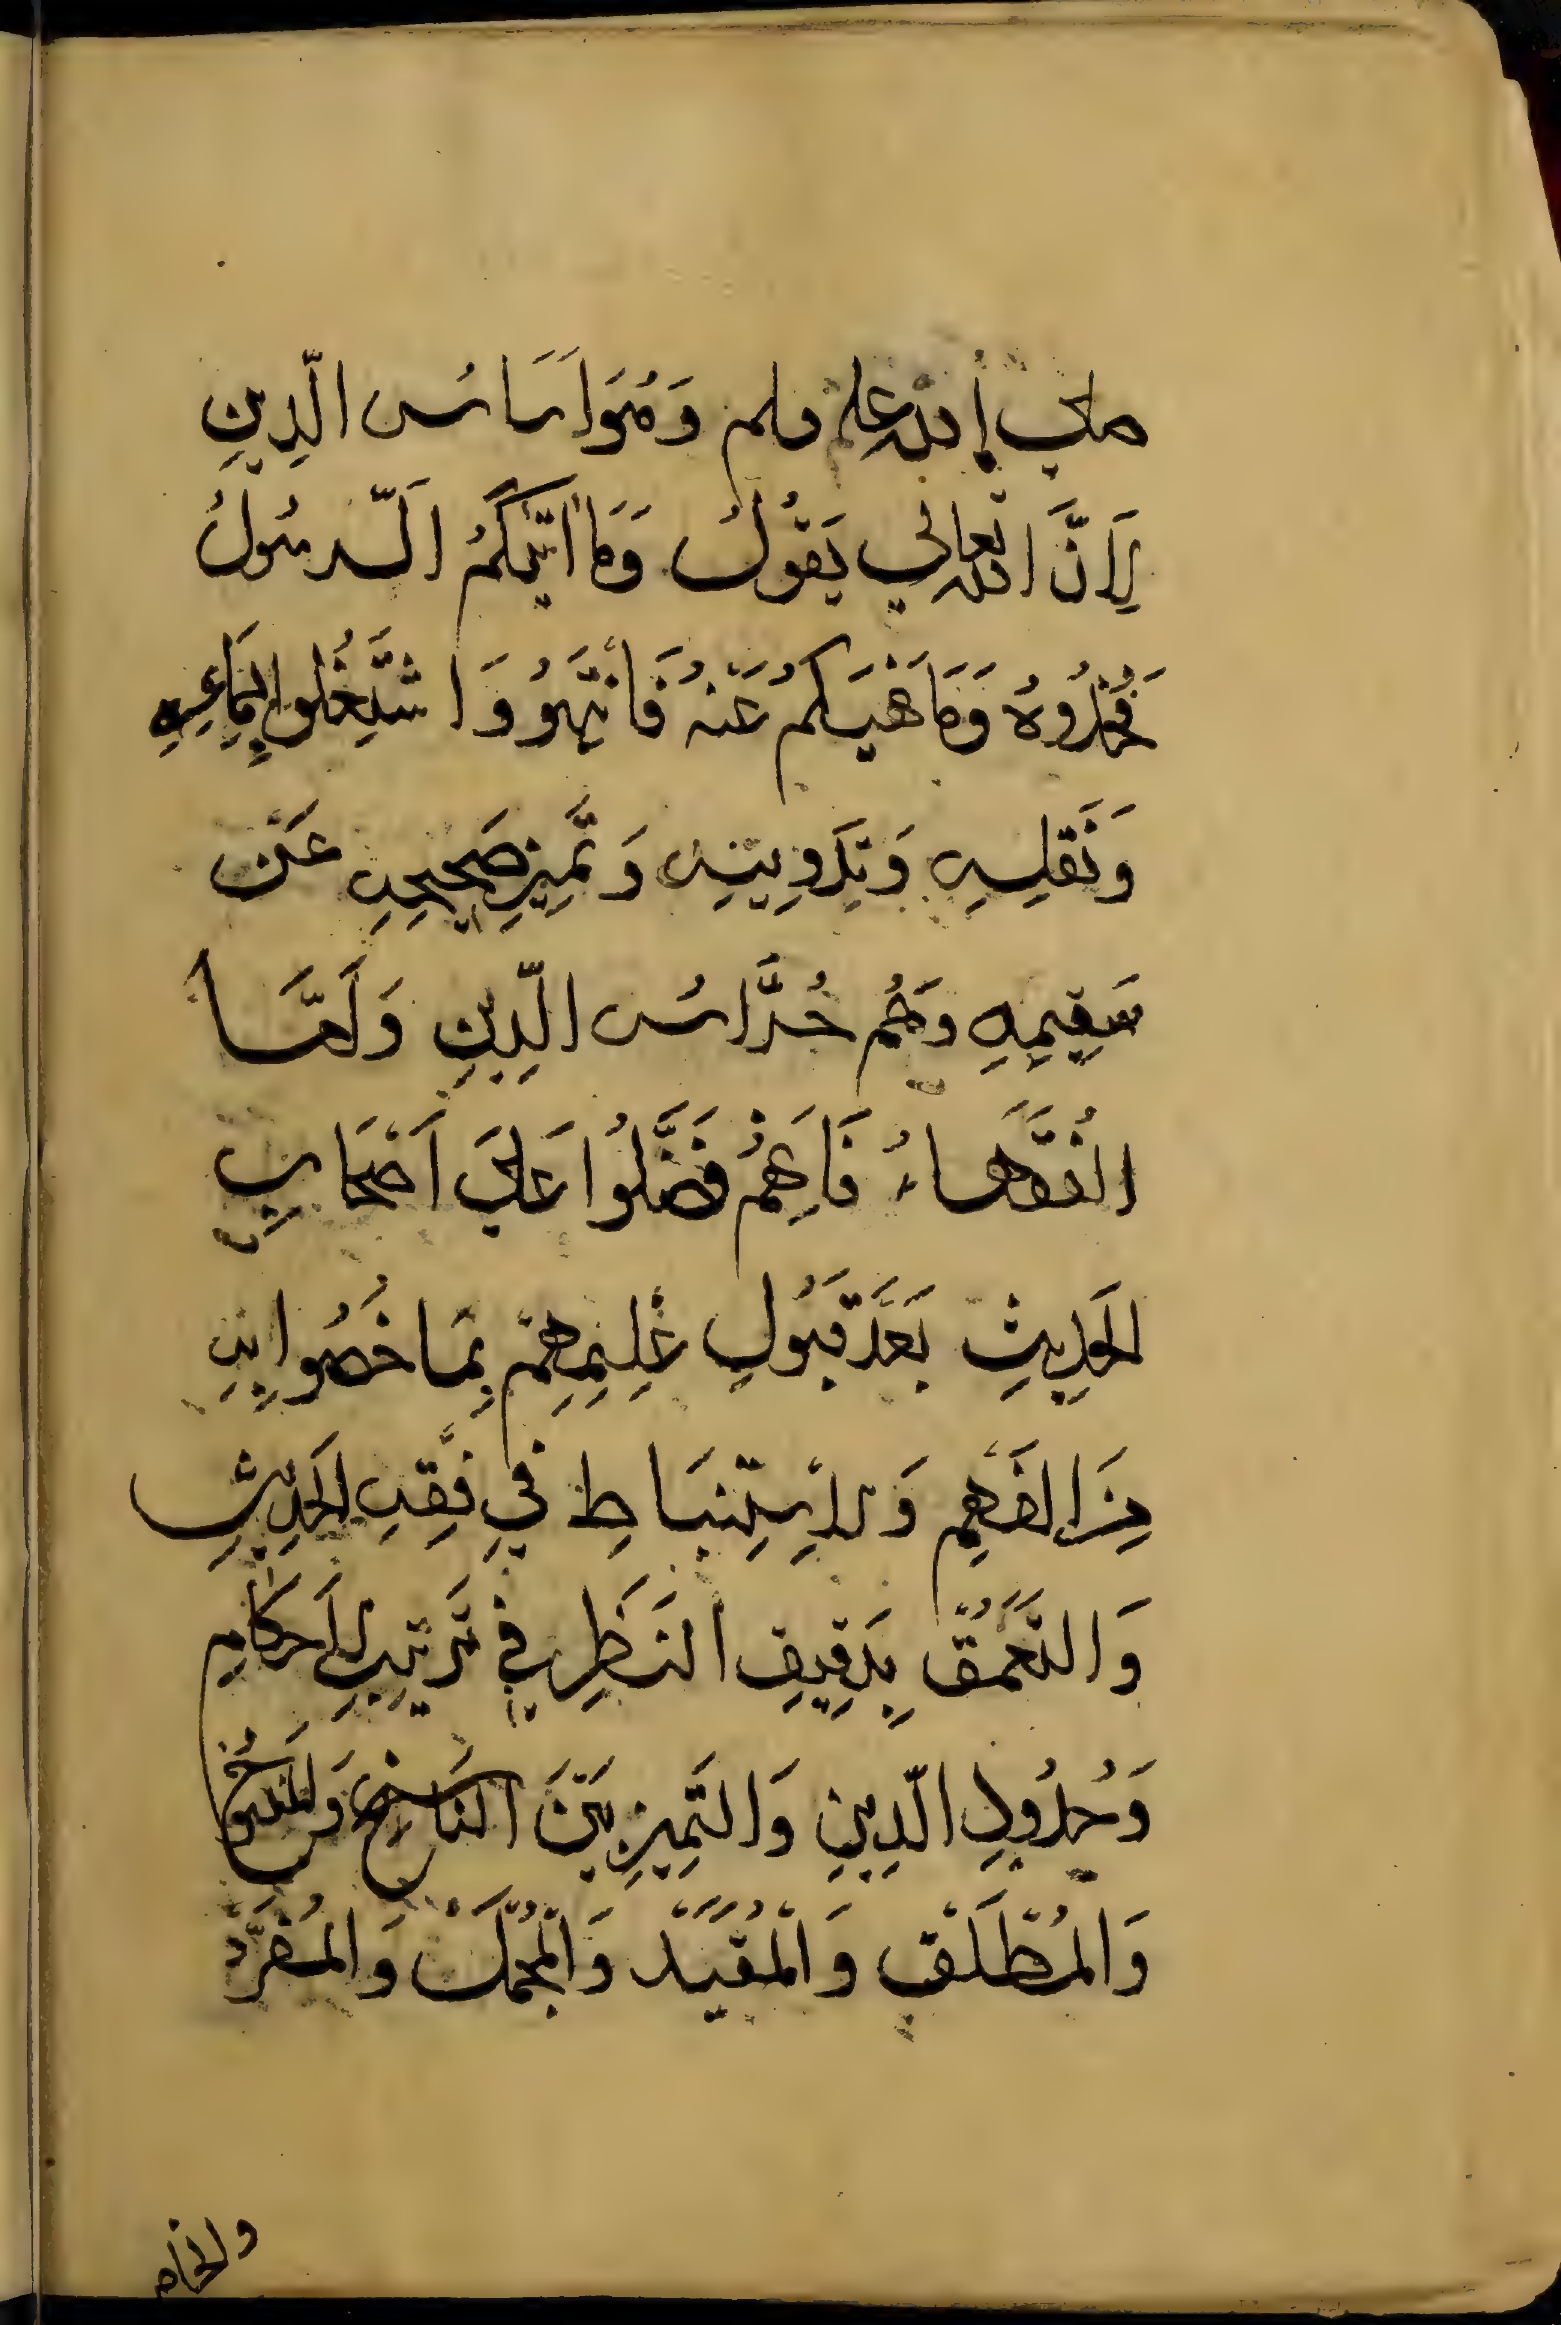 صلى الله عليه وسلم وَهُوَ اَسَاسُ الّدِينِ
لِاَنَّ اللّٰه تعالى يَقُوْلُ وَمَا اٰتٰيكُمُ الَرّسُولُ
فَخُذُوُهُ وَمَا نَهٰيكُمْ عَنْهُ فَانْتَهُوْ وَاشْتَغَلُوا بِسَمَاعِهِ
وَنَقلِهِ وَتَدوِينِهِ وَتَمِيزِ صَحيحِهِ عَنْ
سَقِيمِهِ وَهُم حُرَّاسُ الّدِينِ وَاَمَّا
الفُقَهَاءُ فَاِنَهُمْ فَضَّلُوا عَلَى اَصْحَابِ
الحَدِيثِ بَعَدَ قَبُولِ عُلِمِهِمْ بِمَا خُصُوا بِهِ
مِنَ الفَهِم وَالاِسْتِنبَاطِ فِي فِقهِ الحَدِيثِ
وَالتَعَمُقّ بِدَقِيقِ النَظَرِ فِي تَرتِيبِ الاَحكَامِ
وَحُدُودِ الّدِينِ وَالتَمِيزِ بَيْنَ النَاسِخِ وَالمَنسُوخِ
وَالمُطْلَقْ وَالْمُقَيَّدْ وَالْمُجْمَلْ وَالمُفَسَّرْ
والخاص